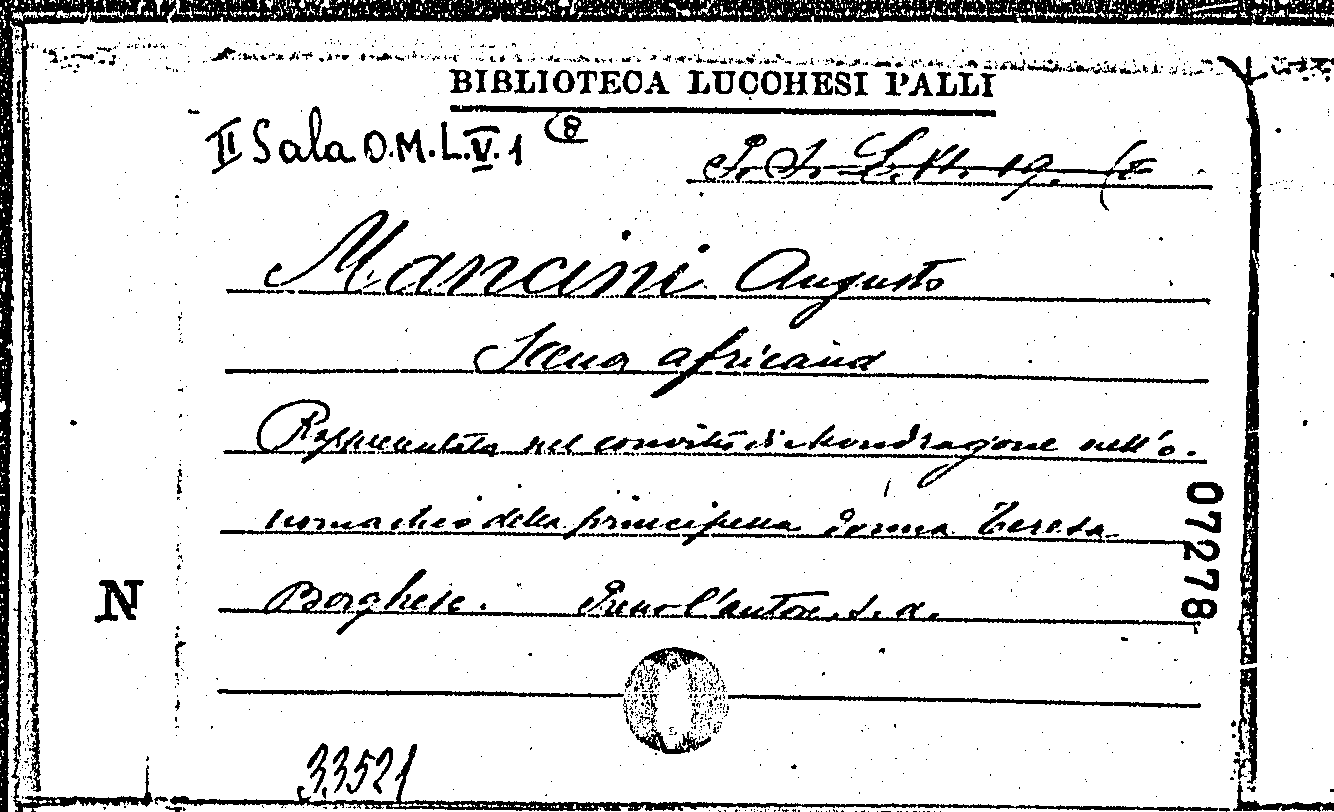 BIBLIOTECA LUCCHESI PALLI
II Sala O.M.L.V.1 (8
Mancini Augusto
Scena africana
Rappresentata nel convitto di Mondragone nell'o-
nomastico della principessa donna Teresa
Borghese. Presso l'autore. s. a.
07278
N
33521